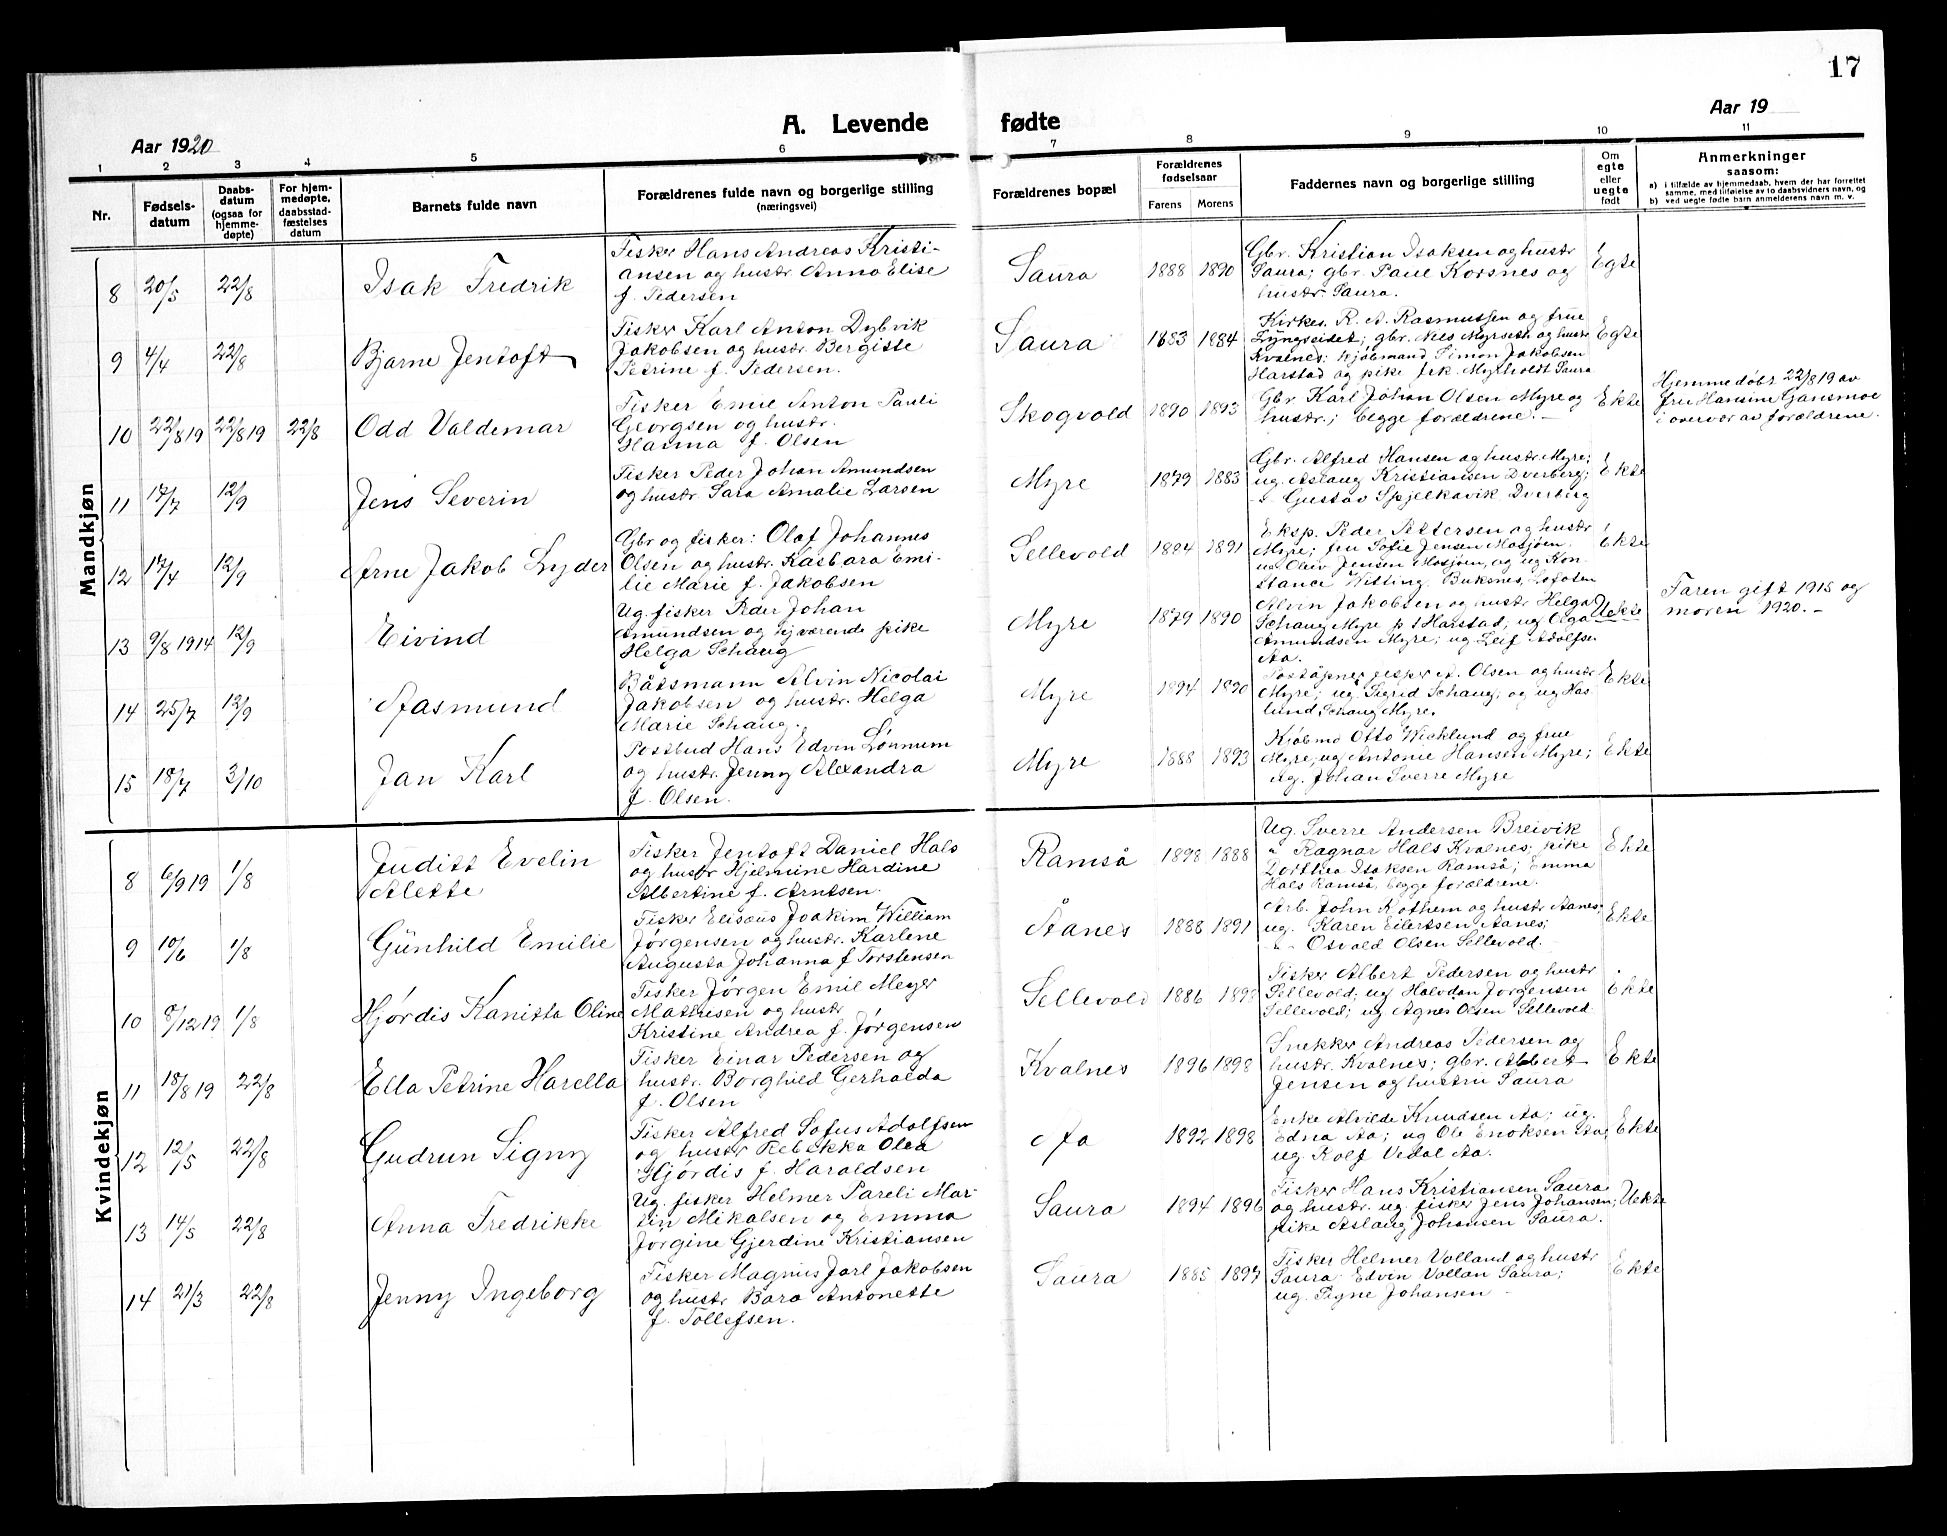 17
A. Levende fødte
Aar 1920
Aar 19
1 2 3 4 5 6 7 8 9 10 11
Nr.
Fødsels-
datum
Daabs-
datum
(ogsaa for
hjemme-
døpte)
For hjem-
medøpte,
daabsstad-
fæstelses
datum
Barnets fulde navn
Forældrenes fulde navn og borgerlige stilling
(næringsvei)
Forældrenes bopæl
Forældrenes
fødselsaar
Farens
Morens
Faddernes navn og borgerlige stilling
Om
egte
eller
uegte
født
Anmerkninger
saasom:
a) i tilfælde av hjemmedaab, hvem der har forrettet
samme, med tilføielse av to daabsvidners navn, og
b) ved uegte fødte barn anmelderens navn m. v.
Mandkjøn
8 20/5 22/8 Isak Fredrik
Fisker Hans Andreas Kristi-
ansen og hustr. Anna Elise
f. Pedersen
Saura 1888 1890
Gbr. Kristian Isaksen og hustr
Saura; gbr. Paul Korsnes og
hustr. Saura.
Egte
9 4/4 22/8 Bjarne Jentoft
Fisker Karl Anton Dybvik
Jakobsen og hustr. Bergitte
Petrine f. Pedersen.
Saura 1883 1884
Kirkes. R. A. Rasmussen og frue
Lyngseidet; gbr. Nels Myrseth og hustr
Kvalnes; kjøbmand Simon Jakobsen
Harstad og pike frk. Myrholdt Saura
Egte
10 22/8 19 22/8 19 22/8 Odd Valdemar
Fisker Emil Anton Pauli
Georgsen og hustr.
Hanna f. Olsen
Skogvold 1890 1893
Gbr. Karl Johan Olsen Myre og
hustr.; begge forældrene. -
Ekte
Hjemmedøbt 22/8 19 av
fru Hansine Gansmoe
i overvær av forældrene.
11 17/7 12/9 Jens Severin
Fisker Peder Johan Amundsen
og hustr. Sara Amalie Larsen
Myre 1879 1883
Gbr. Alfred Hansen og hustr. Myre;
ug. Aslaug Kristiansen Dverberg;
" Gustav Spjelkavik Dverberg
Ekte
12 17/4 12/9 Arne Jakob Lyder
Gbr og fisker: Olaf Johannes
Olsen og hustr. Kasbara Emi-
lie Marie f. Jakobsen
Sellevold 1894 1891
Eksp. Peder Pettersen og hustr
Myre; fru Sofie Jensen Mosjøen.
ug Oleiv Jensen Mosjøen, og ug Kon-
stance Witting Buksnes, Lofoten
Ekte
13 9/8 1914 12/9 Eivind
Ug. fisker Peder Johan
Amundsen og hjværende pike
Helga Schaug
Myre 1879 1890
Alvin Jakobsen og hustr Helga
Schaug Myre p t Harstad; ug Olga
Amundsen Myre; ug Leif Adolfsen
Aa.
Uekte
Faren gift 1915 og
moren 1920. -
14 25/7 12/9 Aasmund
Båtsmann Alvin Nicolai
Jakobsen og hustr. Helga
Marie Schaug.
Myre 1894 1890
Poståpner Jesper A. Olsen og hustr
Myre; ug Sigrid Schaug; og ug Has-
lund Schaug Myre.
Ekte
15 18/7 3/10 Jan Karl
Postbud Hans Edvin Lønnum
og hustr. Jenny Alexandra
f. Olsen.
Myre 1888 1893
Kjøbm. Otto Wicklund og frue
Myre, ug Antonie Hansen Myre;
ug. Johan Sverre Myre
Ekte
Kvindekjøn
8 6/9 19 1/8 Juditt Evelin
Alette
Fisker Jentoft Daniel Hals
og hustr Hjelmine Hardine
Albertine f. Arntsen.
Ramså 1898 1888
Ug. Sverre Andersen Breivik
" Ragnar Hals Kvalnes; pike
Dorthea Isaksen Ramså; Emma
Hals Ramså, begge forældrene.
Ekte
9 10/6 1/8 Günhild Emilie
Fisker Elisæus Joakim William
Jørgensen og hustr. Karlene
Augusta Johanna f Torstensen
Åanes 1888 1891
Arb. John Kothem og hustr Aanes;
ug. Karen Eilertsen Aanes;
" - Osvald Olsen Sellevold.
Ekte
10 8/12 19 1/8 Hjørdis Kanitta Oline
Fisker Jørgen Emil Meyer
Mathisen og hustr
Kristine Andrea f. Jørgensen
Sellevold 1886 1898
Fisker Albert Pedersen og hustr
Sellevold; ug Halvdan Jørgensen
Sellevold; ug Agnes Olsen Sellevold
Ekte
11 18/8 19 22/8 Ella Petrine Harella
Fisker Einar Pedersen og
hustr. Borghild Gerhalda
f. Olsen
Kvalnes 1896 1898
Snekker Andreas Pedersen og
hustr. Kvalnes; gbr. Albert
Jensen og hustru Saura
Ekte
12 12/5 22/8 Gudrun Signy
Fisker Alfred Sofus Adolfsen
og hustr Rebekka Olea
Hjørdis f. Haraldsen
Aa 1892 1898
Enke Alvilde Knudsen Aa; ug.
Edna Aa; ug Ole Enoksen Aa,
ug. Rolf Vedal Aa.
Ekte
13 14/5 22/8 Anna Fredrikke
Ug. fisker Helmer Pareli Mar-
tin Mikalsen og Emma
Jørgine Gjerdine Kristiansen
Saura 1894 1896
Fisker Hans Kristiansen Saura
og hustr. ug. fisker Jens Johansen;
pike Aslaug Johansen Saura.
Uekte
14 21/3 22/8 Jenny Ingeborg
Fisker Magnus Jarl Jakobsen
og hustr Bara Antonette
f. Tollefsen.
Saura 1885 1897
Fisker Helmer Volland og hustr
Saura Edvin Vollan Saura;
ug. Signe Johansen -
Ekte